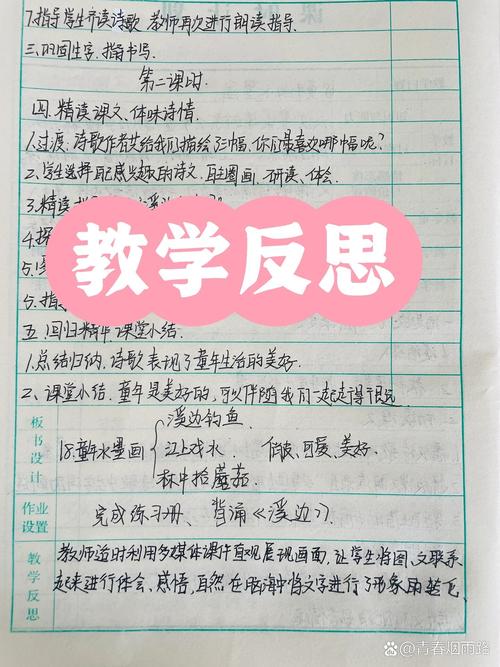 7.指导学生齐读诗歌,教师再次进行朗读指导.
三.巩固生字,指导书写.
第二课时
四.精读课文,体味诗情.
1.过渡:诗歌作者共给我们描绘了三幅,你们最喜欢哪幅呢?
2.学生选择自己感兴趣的诗文,画图画,研读、体会.
3.精读
4.探
5.
教学反思
5.指
五.回归精神.课堂小结.
1.总结归纳.诗歌表现了童年生活的美好.
2.课堂小结.童年是美好的,可以伴随我们一起走得很远
板书设计
18.童年水墨画
溪边钓鱼
江上戏水
林中拾蘑菇
俏皮、可爱、美好.
作业设置
完成练习册、背诵《溪边》.
教学反思
教师适时利用多媒体课件直观展现画面,让学生将图、文联系
起来进行体会、感悟,自然在脑海中将文字进行了形象的
青春烟雨路